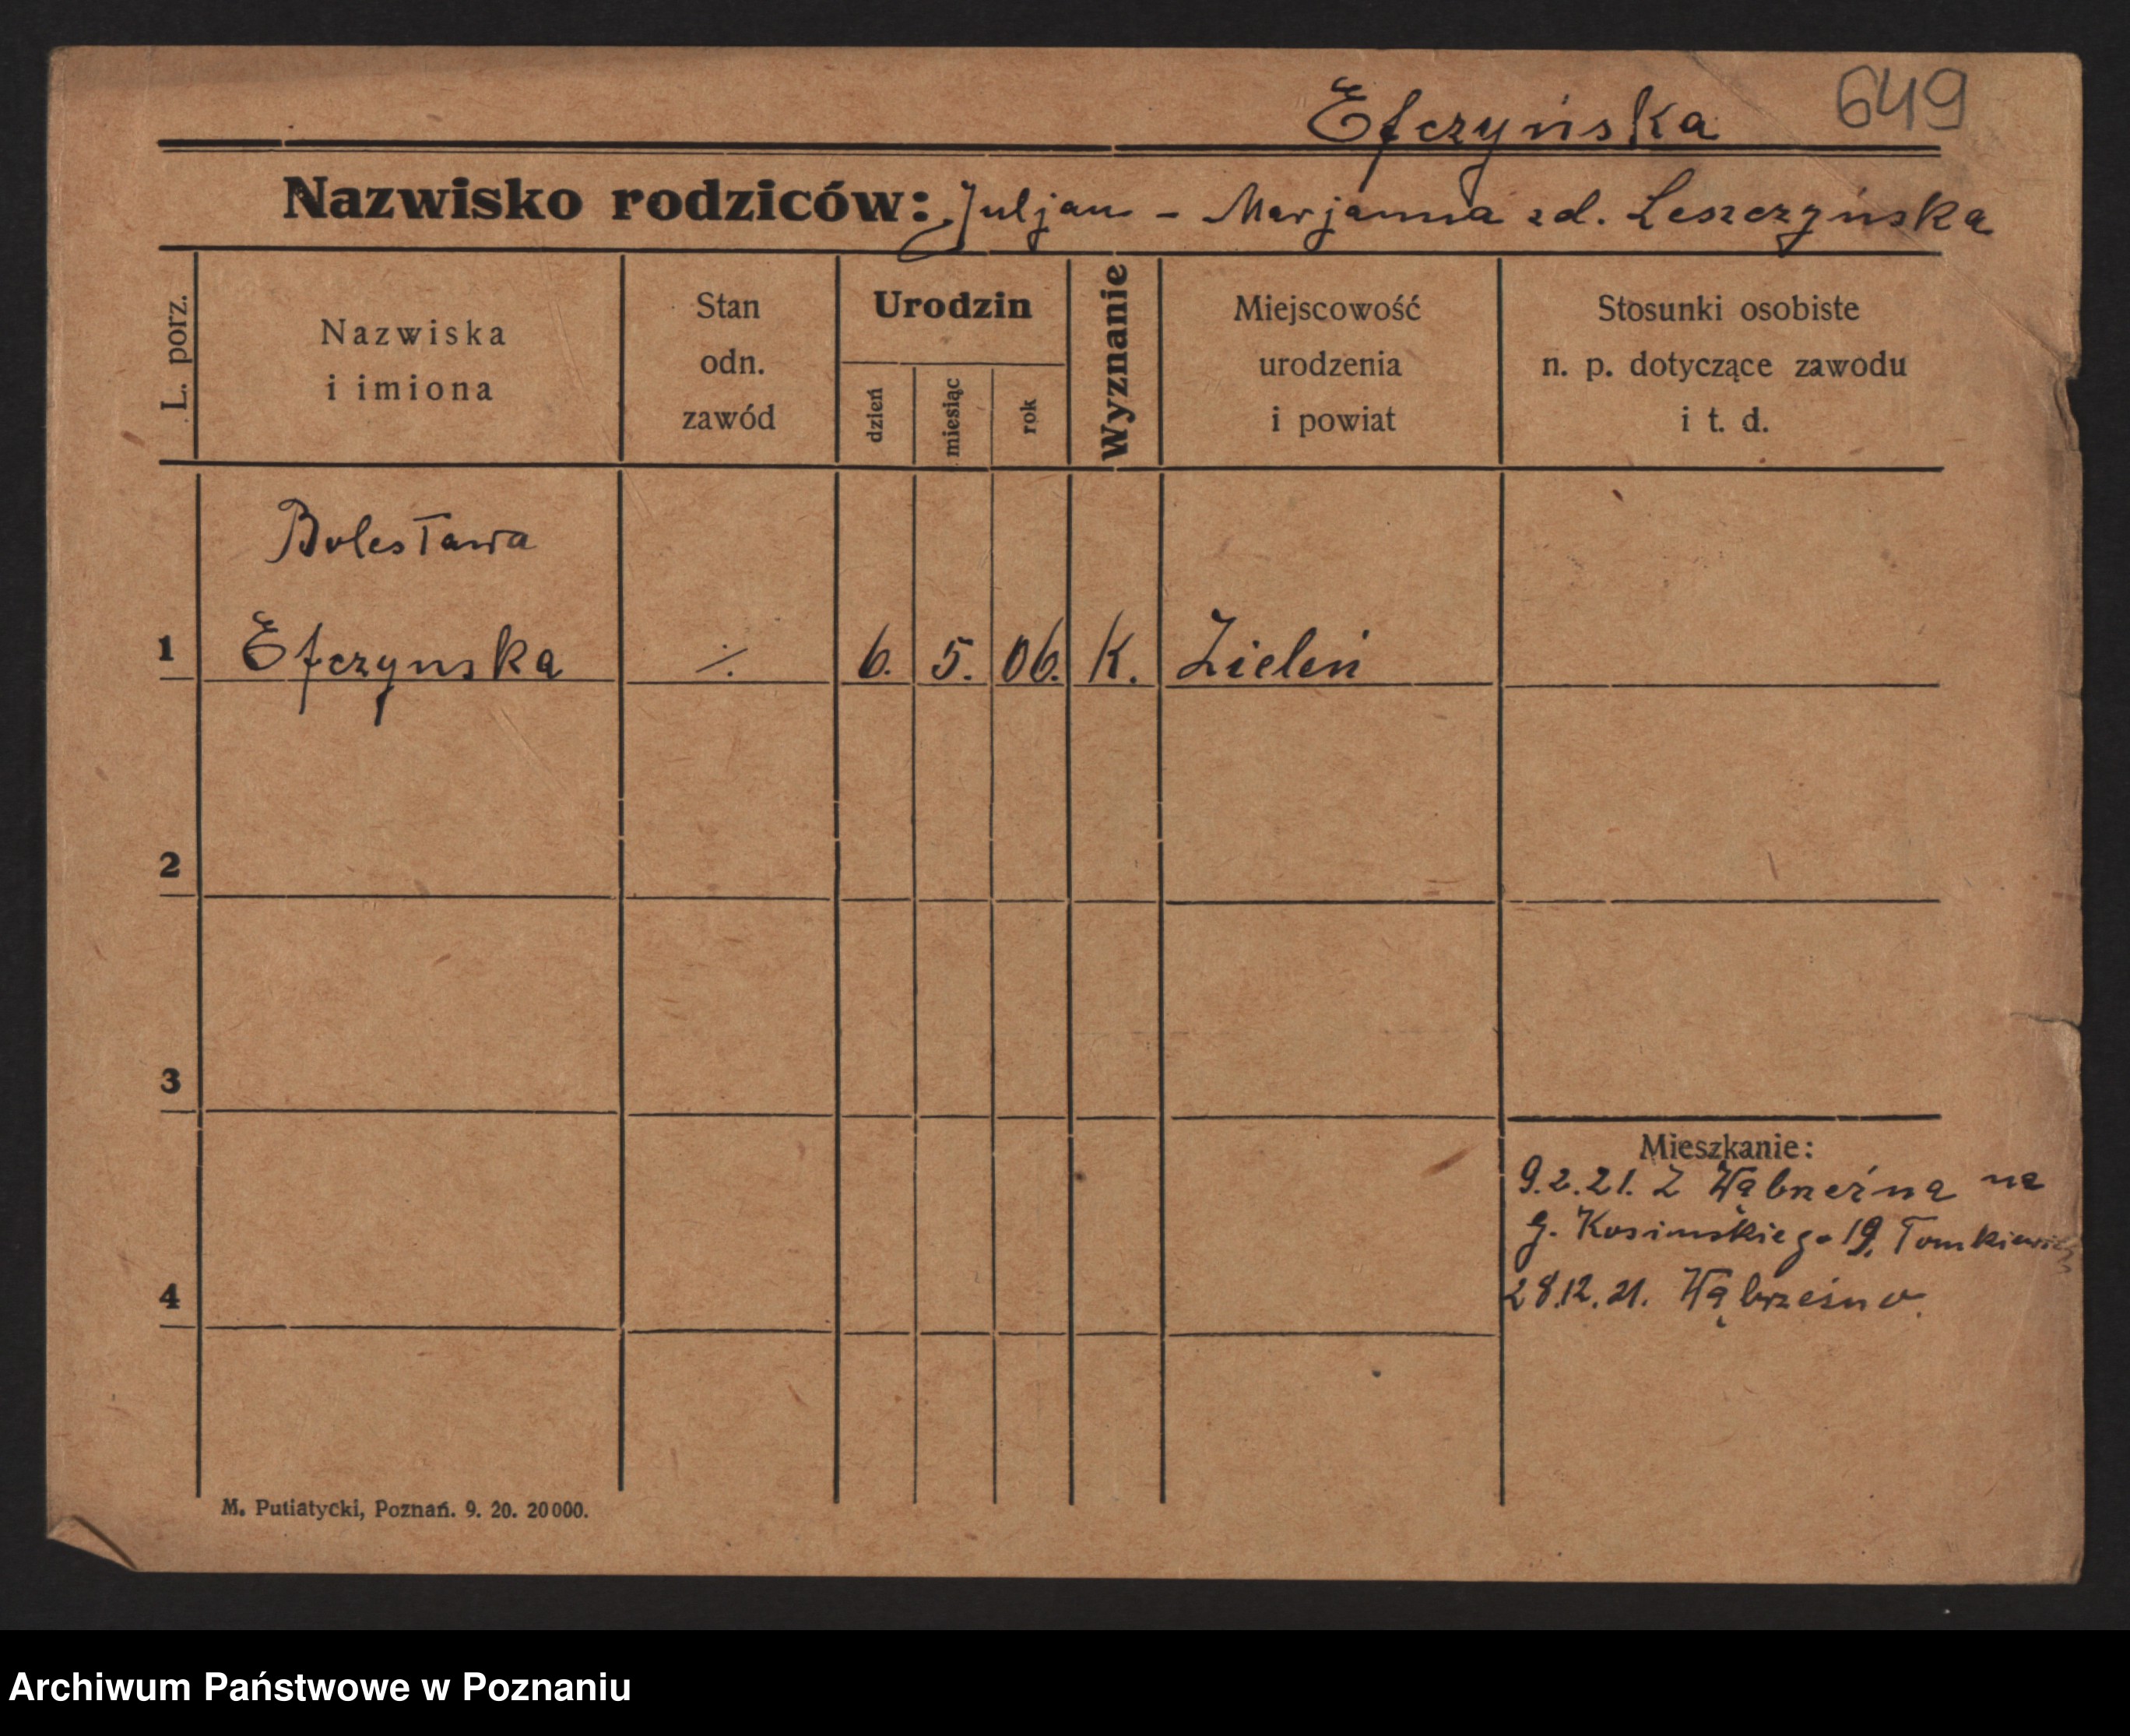 Efczyńska 649
Nazwisko rodziców: Juljan - Marjanna zd. Leszczyńska
L. porz.
Nazwiska
i imiona
Stan
odn.
zawód
Urodzin
dzień
miesiąc
rok
Wyznanie
Miejscowość
urodzenia
i powiat
Stosunki osobiste
n. p. dotyczące zawodu
i t. d.
Bolesława
1 Efczynska ./. 6. 5. 06. K. Zieleń
2
3
Mieszkanie:
9.2.21. Z Wąbrzeźna na
G. Kosinskiego 19, Tomkiewicz
28.12.21. Wąbrzeźno.
4
M. Putiatycki, Poznań. 9. 20. 20000.
Archiwum Państwowe w Poznaniu